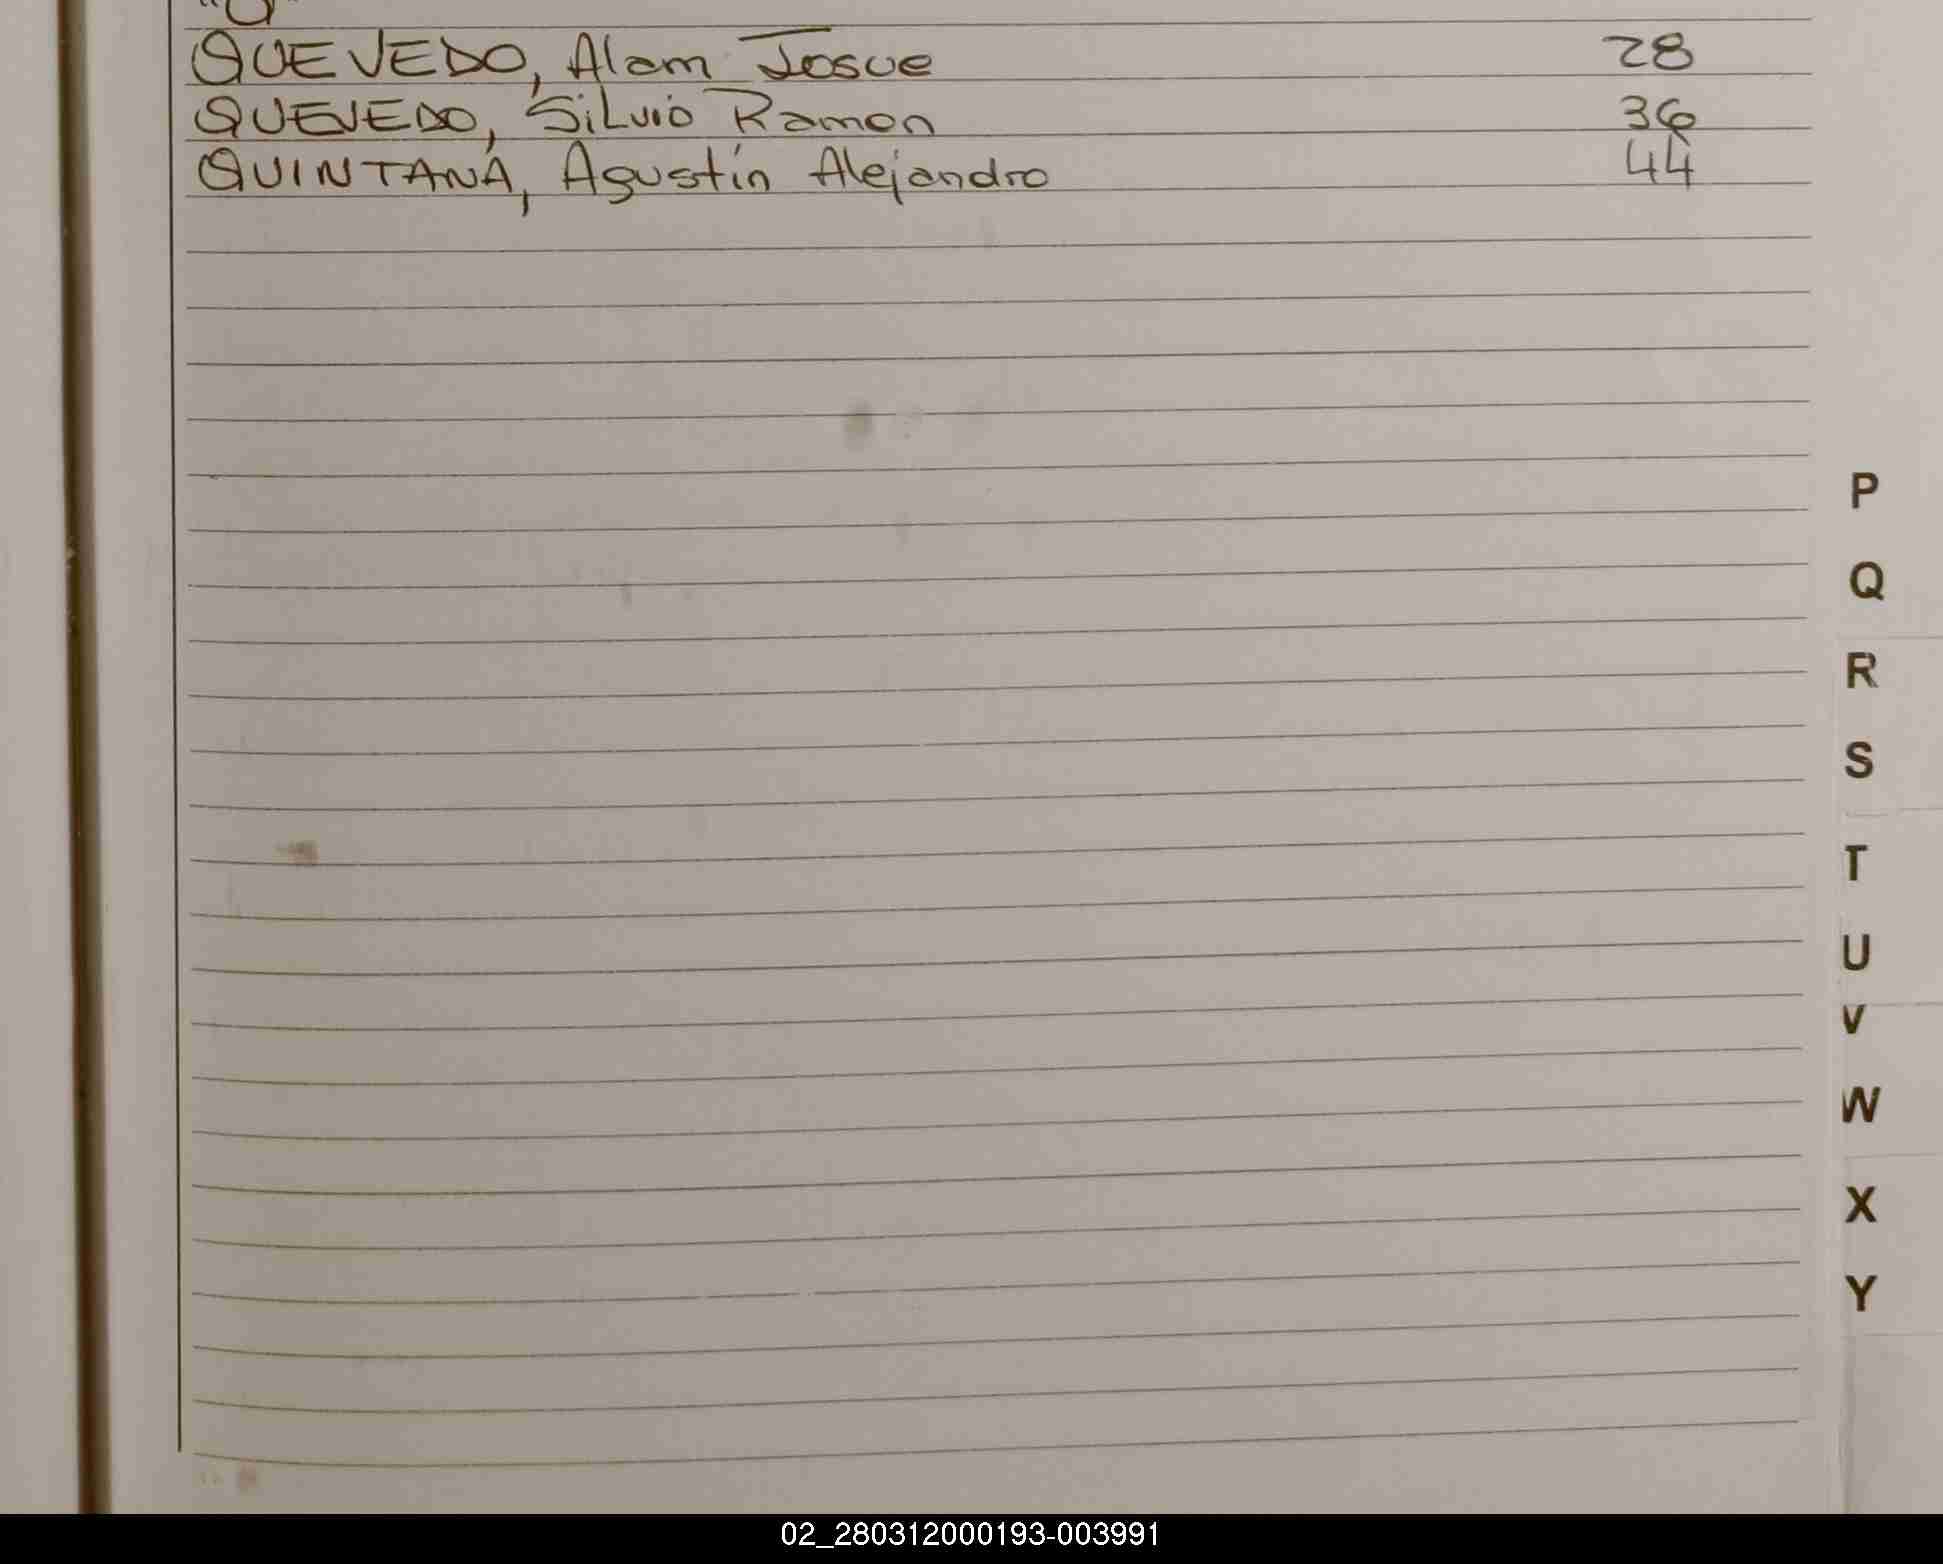 "Q"
QUEVEDO, Alam Josue 28
QUEVEDO, Silvio Ramon 36
QUINTANA, Agustín Alejandro 44
P
Q
R
S
T
U
V
W
X
Y
02_280312000193-003991